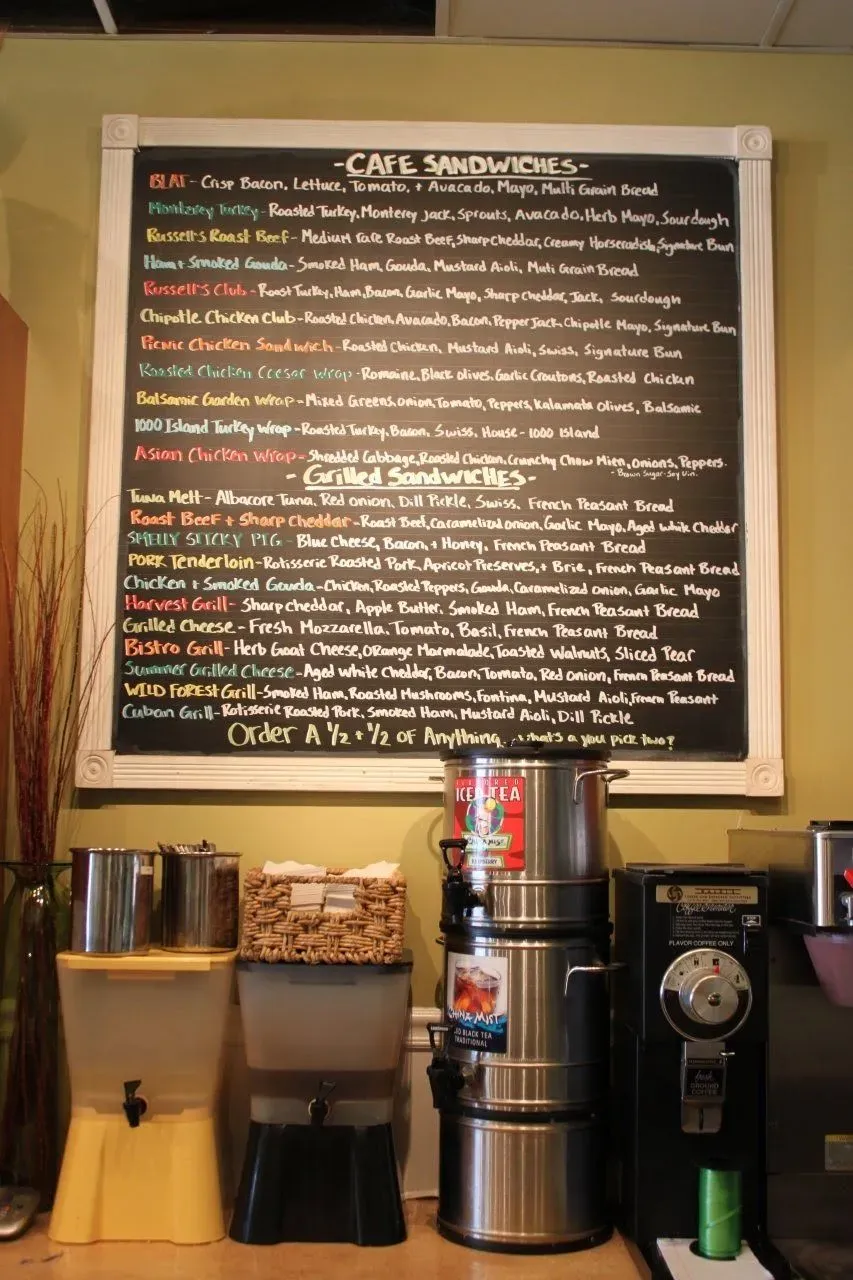 -CAFE SANDWICHES-
BLAT - Crisp Bacon, Lettuce, Tomato, + Avacado, Mayo, Multi Grain Bread
Monterey Turkey - Roasted Turkey, Monterey Jack, Sprouts, Avacado, Herb Mayo, Sourdough
Russell's Roast Beef - Medium rare Roast Beef, Sharp Cheddar, Creamy Horseradish, Signature Bun
Ham + Smoked Gouda - Smoked Ham, Gouda, Mustard Aioli, Muti Grain Bread
Russell's Club - Roast Turkey, Ham, Bacon, Garlic Mayo, Sharp Cheddar, Jack, Sourdough
Chipotle Chicken Club - Roasted Chicken, Avacado, Bacon, Pepper Jack, Chipotle Mayo, Signature Bun
Picnic Chicken Sandwich - Roasted Chicken, Mustard Aioli, Swiss, Signature Bun
Roasted Chicken Ceesar Wrap - Romaine, Black Olives, Garlic Croutons, Roasted Chicken
Balsamic Garden Wrap - Mixed Greens, onion, Tomato, Peppers, Kalamata Olives, Balsamic
1000 Island Turkey Wrap - Roasted Turkey, Bacon, Swiss, House - 1000 Island
Asian Chicken Wrap - Shredded Cabbage, Roasted Chicken, Crunchy Chow Mien, Onions, Peppers.
- Brown Sugar-Soy Vin.
- Grilled SandWICHES -
Tuna Melt - Albacore Tuna, Red onion, Dill Pickle, Swiss, French Peasant Bread
Roast Beef + Sharp Cheddar - Roast Beef, Caramelized onion, Garlic Mayo, Aged white Cheddar
SMELLY STICKY PIG - Blue Cheese, Bacon, + Honey, French Peasant Bread
PORK Tenderloin - Rotisserie Roasted Pork, Apricot Preserves, + Brie, French Peasant Bread
Chicken + Smoked Gouda - Chicken, Roasted Peppers, Gouda, Caramelized Onion, Garlic Mayo
Harvest Grill - Sharp cheddar, Apple Butter, Smoked Ham, French Peasant Bread
Grilled Cheese - Fresh Mozzarella, Tomato, Basil, French Peasant Bread
Bistro Grill - Herb Goat Cheese, Orange Marmalade, Toasted Walnuts, Sliced Pear
Summer Grilled Cheese - Aged White Cheddar, Bacon, Tomato, Red onion, French Peasant Bread
WILD FOREST Grill - Smoked Ham, Roasted Mushrooms, Fontina, Mustard Aioli, French Peasant
Cuban Grill - Rotisserie Roasted Pork, Smoked Ham, Mustard Aioli, Dill Pickle
Order A 1/2 + 1/2 OF Anything... what's a you pick two?
ICED TEA
RASPBERRY
CHINA MIST
ICED BLACK TEA
TRADITIONAL
FLAVOR COFFEE ONLY
fresh
GROUND
COFFEE